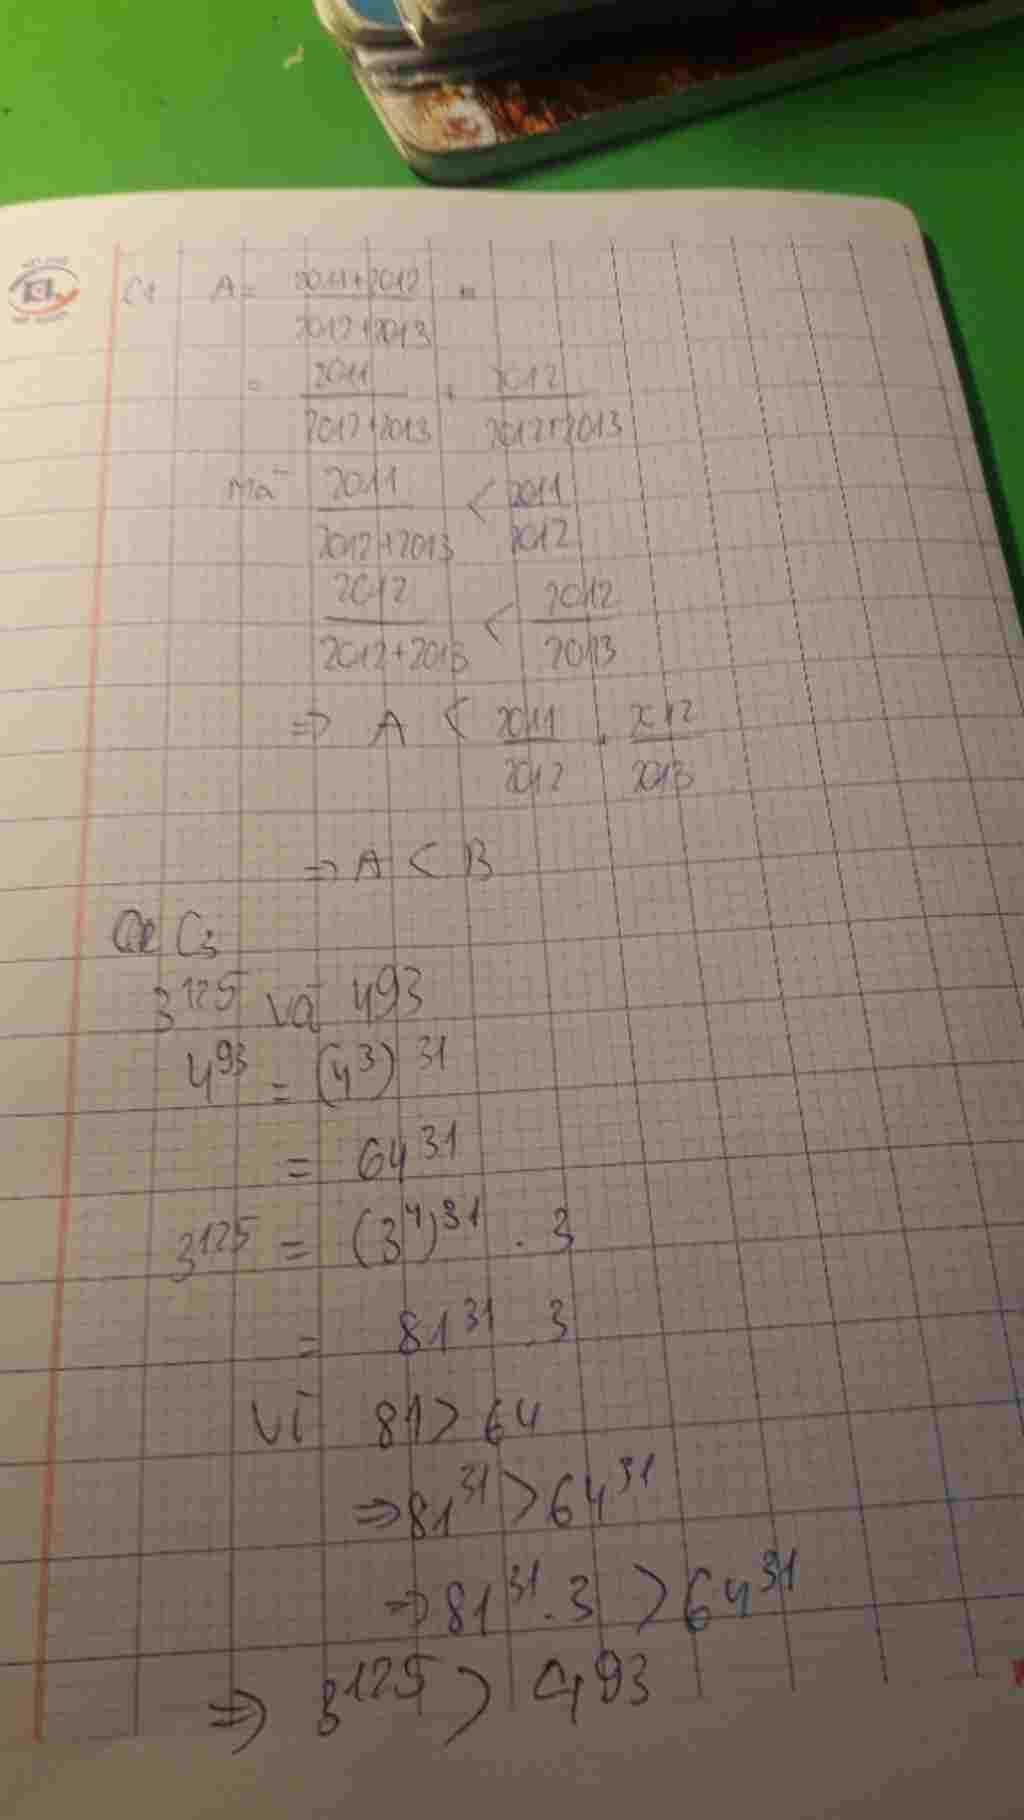 C1 A = (2011+2012)/(2012+2013) =
= 2011/(2012+2013) + 2012/(2012+2013)
Mà 2011/(2012+2013) < 2011/2012
2012/(2012+2013) < 2012/2013
=> A < 2011/2012 + 2012/2013
=> A < B
C3
3^125 và 4^93
4^93 = (4^3)^31
= 64^31
3^125 = (3^4)^31 . 3
= 81^31 . 3
Vì 81 > 64
=> 81^31 > 64^31
=> 81^31 . 3 > 64^31
=> 3^125 > 4^93